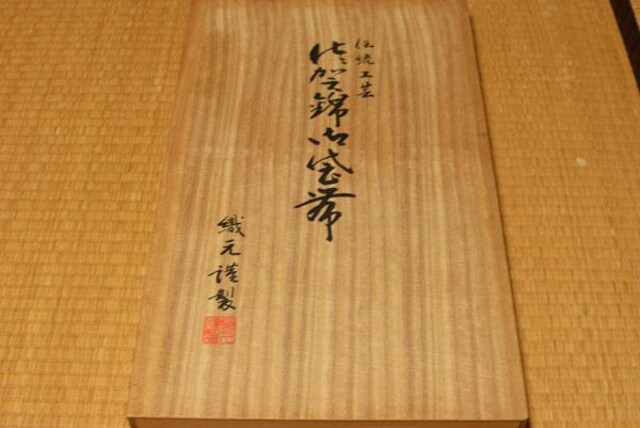 伝統工芸
佐賀錦御袋帯
織元謹製